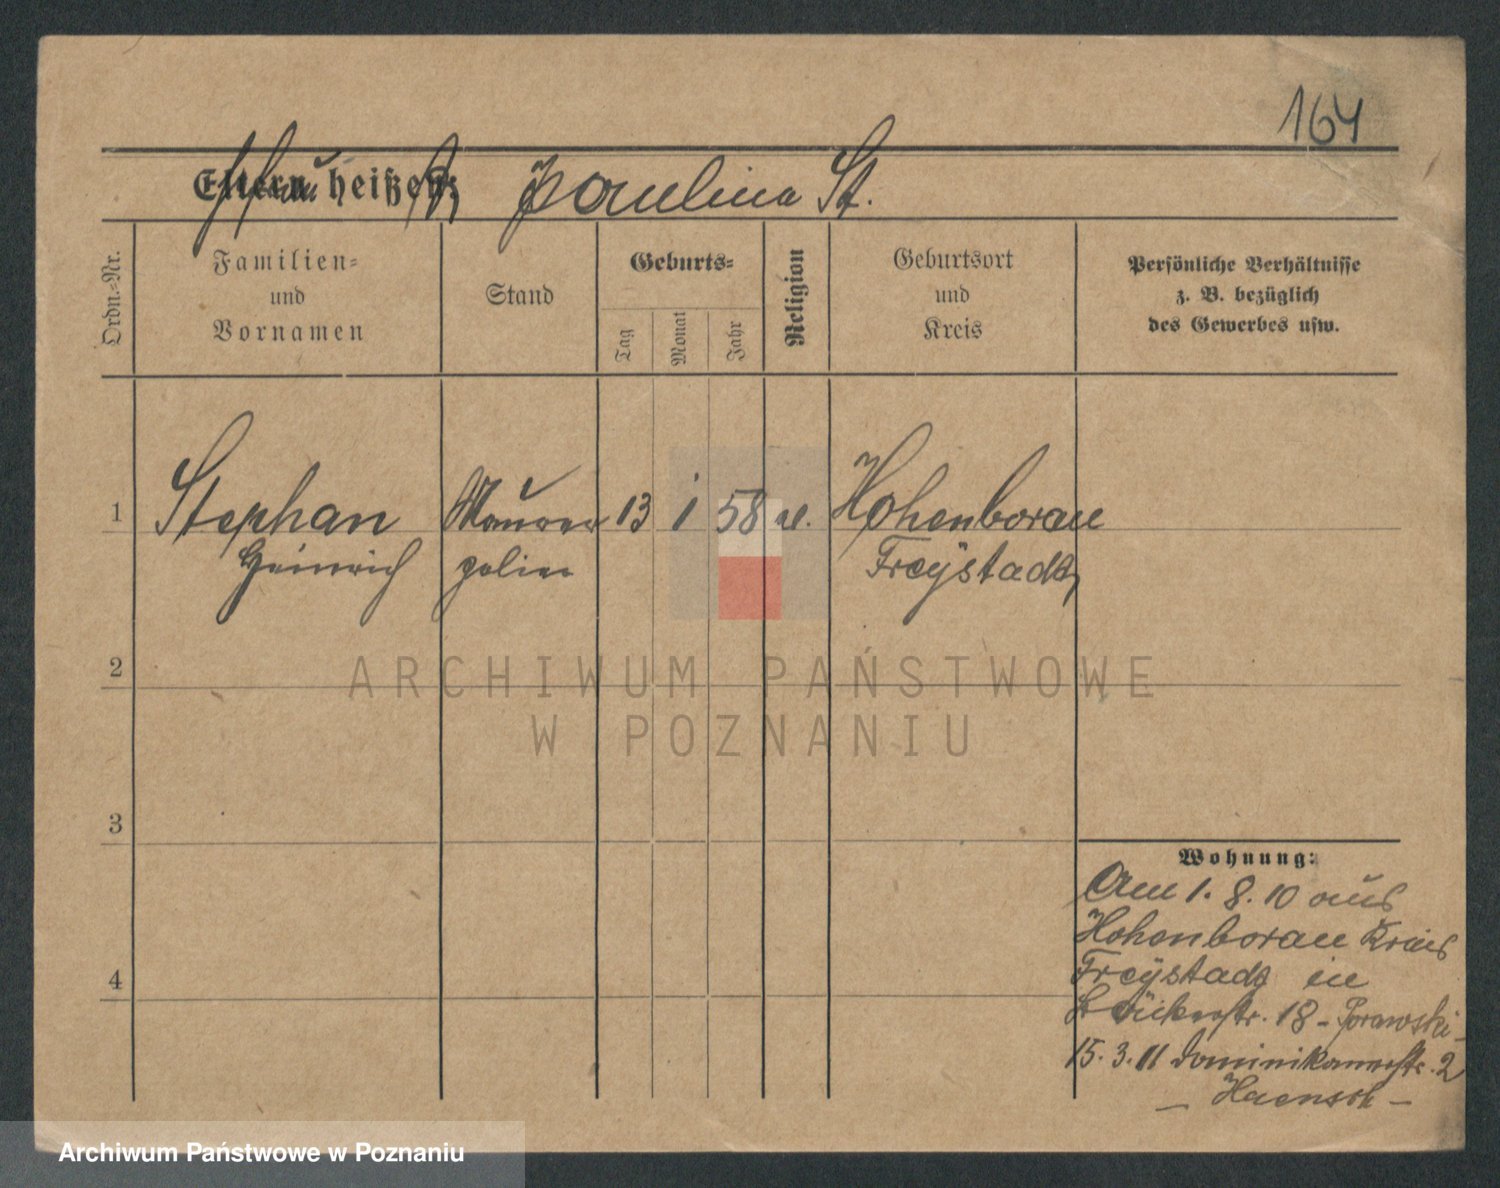 164
Eltern heißen: Paulina St.
Ordn.-Nr.
Familien-
und
Vornamen
Stand
Geburts-
Tag
Monat
Jahr
Religion
Geburtsort
und
Kreis
Persönliche Verhältnisse
z. B. bezüglich
des Gewerbes usw.
1 Stephan Maurer 13 1 58 Hohenborau
Heinrich polier Freystadt
2
ARCHIWUM PAŃSTWOWE
W POZNANIU
3
Wohnung:
Am 1. 8. 10 aus
Hohenborau Kreis
4 Freystadt in
18 - Porawski -
15. 3. 11 Dominikanerstr. 2
- Haensch -
Archiwum Państwowe w Poznaniu